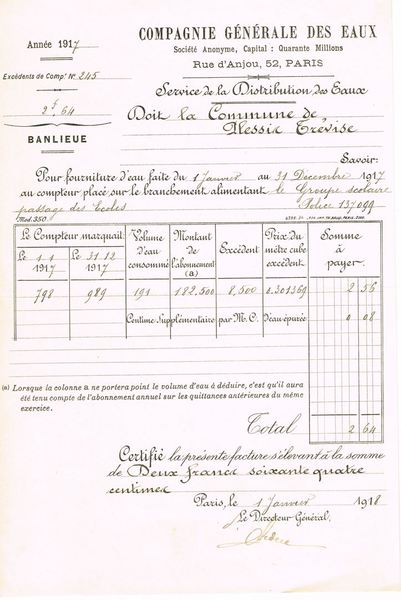 Année 1917
COMPAGNIE GÉNÉRALE DES EAUX
Société Anonyme, Capital : Quarante Millions
Rue d'Anjou, 52, PARIS
Excédents de Compr. N° 245
2f,64
BANLIEUE
Service de la Distribution des Eaux
Doit la Commune de
Plessis Trévise
Savoir:
Pour fourniture d'eau faite du 1 Janvier au 31 Décembre 1917
au compteur placé sur le branchement alimentant le Groupe scolaire
passage des Écoles Police 137099
Mod. 350
Le Compteur marquait: Volume d'eau consommé Montant de l'abonnement (a) Excédent Prix du mètre cube excédent Somme à payer
Le 1.1 1917 Le 31.12 1917
798 989 191 182,500 8,500 0.301369 2 56
Centime Supplémentaire par M. C. d'eau épurée 0 08
(a) Lorsque la colonne a ne portera point le volume d'eau à déduire, c'est qu'il aura
été tenu compte de l'abonnement annuel sur les quittances antérieures du même
exercice.
Total 2 64
Certifié la présente facture s'élevant à la somme
de Deux francs soixante quatre
centimes
Paris, le 1 Janvier 1918
Le Directeur Général,